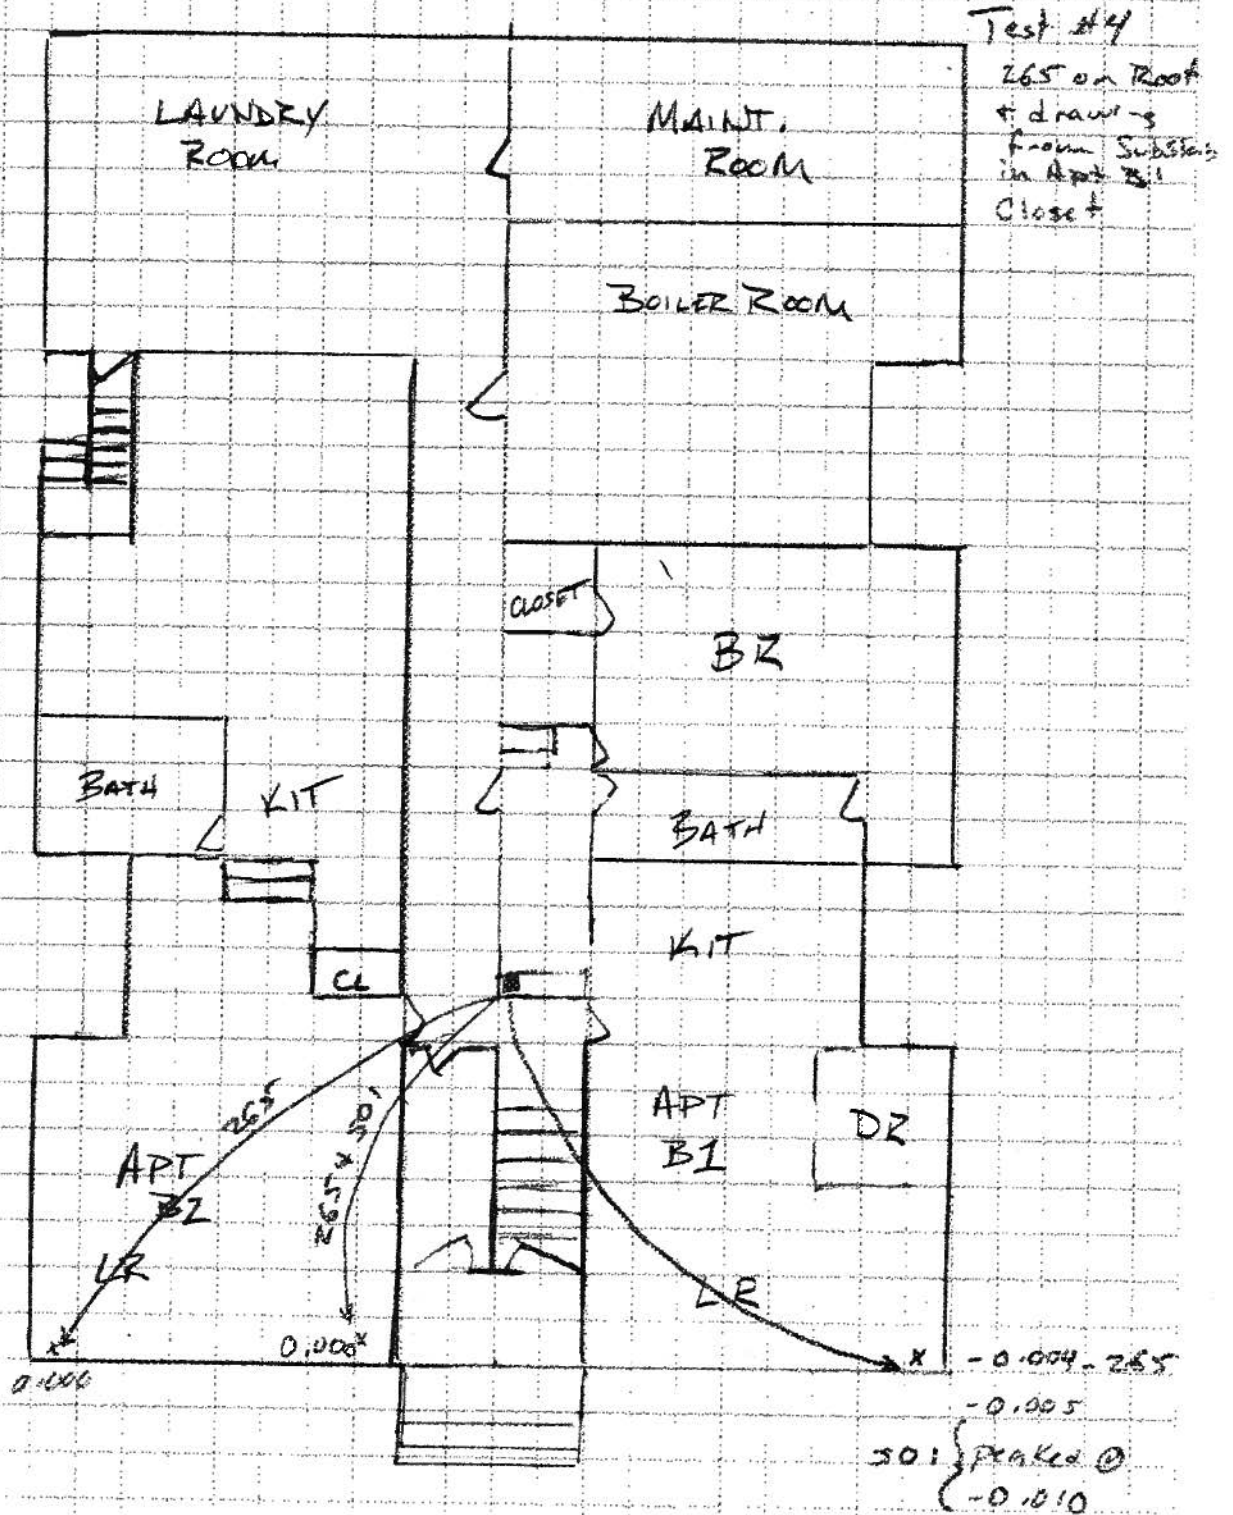 Test #4
265 on Roof
+ drawing
from Subslab
in Apt B1
Closet
LAUNDRY
ROOM
MAINT.
ROOM
BOILER ROOM
CLOSET
BR
BATH
KIT
BATH
KIT
CL
265
265 x 50'
APT
B2
APT
B1
DR
LR
LR
0.000
0.000 x
x
x
-0.004 - 265
-0.005
50: { peaked @
-0.010